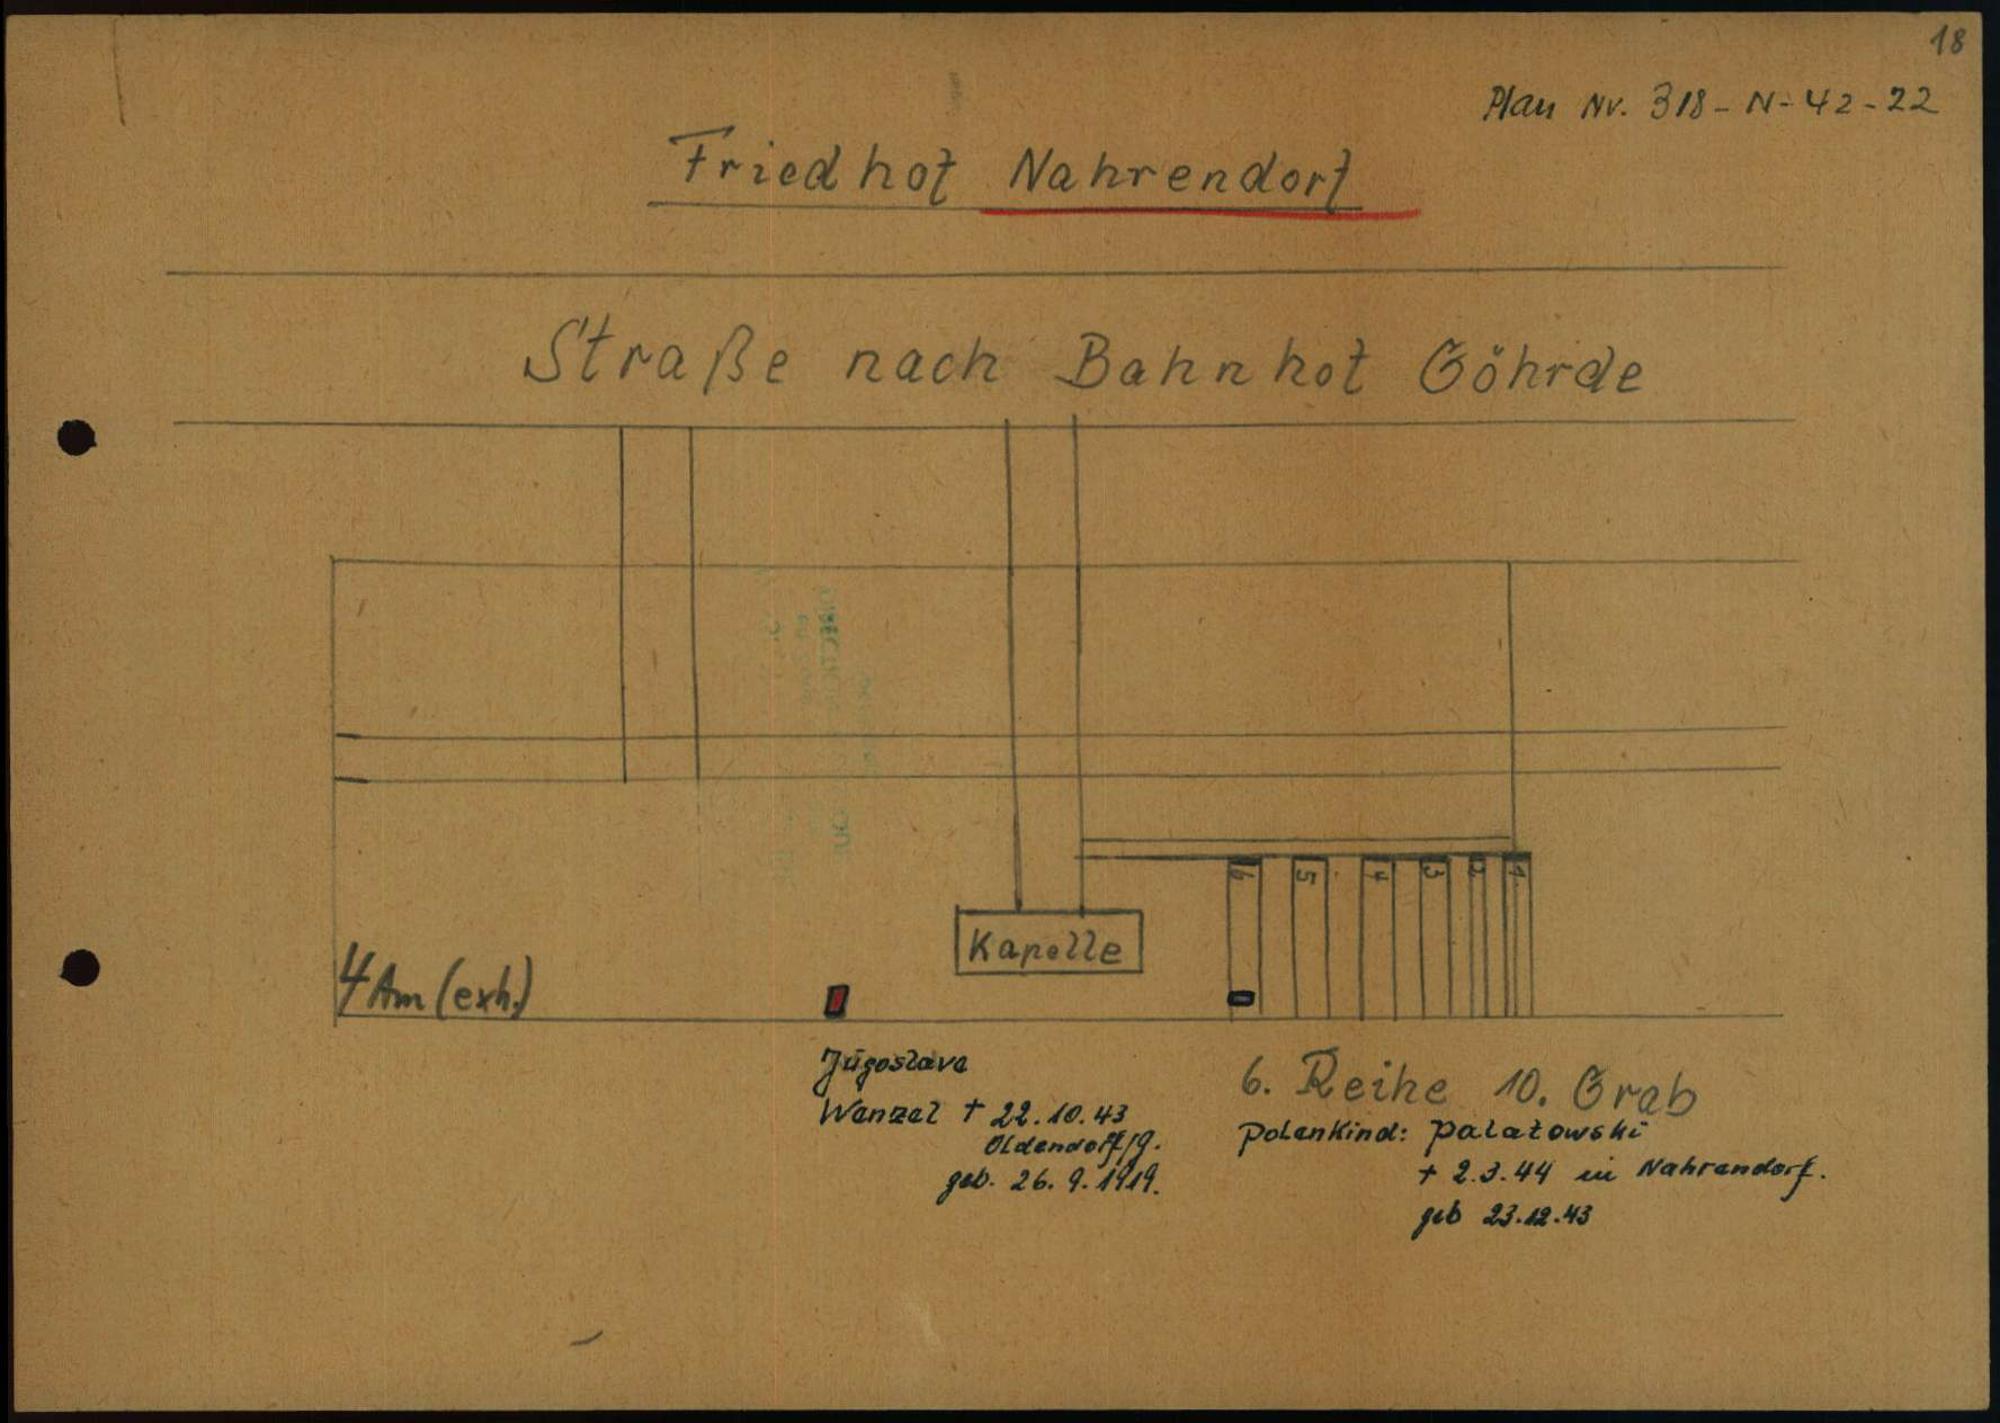 18
Plan Nr. 318-N-42-22
Friedhof Nahrendorf
Straße nach Bahnhof Göhrde
6 5 4 3 2 1
Kapelle
4 Am (exh.)
Jugoslave
Wenzel + 22.10.43
Oldendorf/G.
geb. 26.9.1919.
6. Reihe 10. Grab
Polenkind: Palatowski
+ 2.3.44 in Nahrendorf.
geb 23.12.43